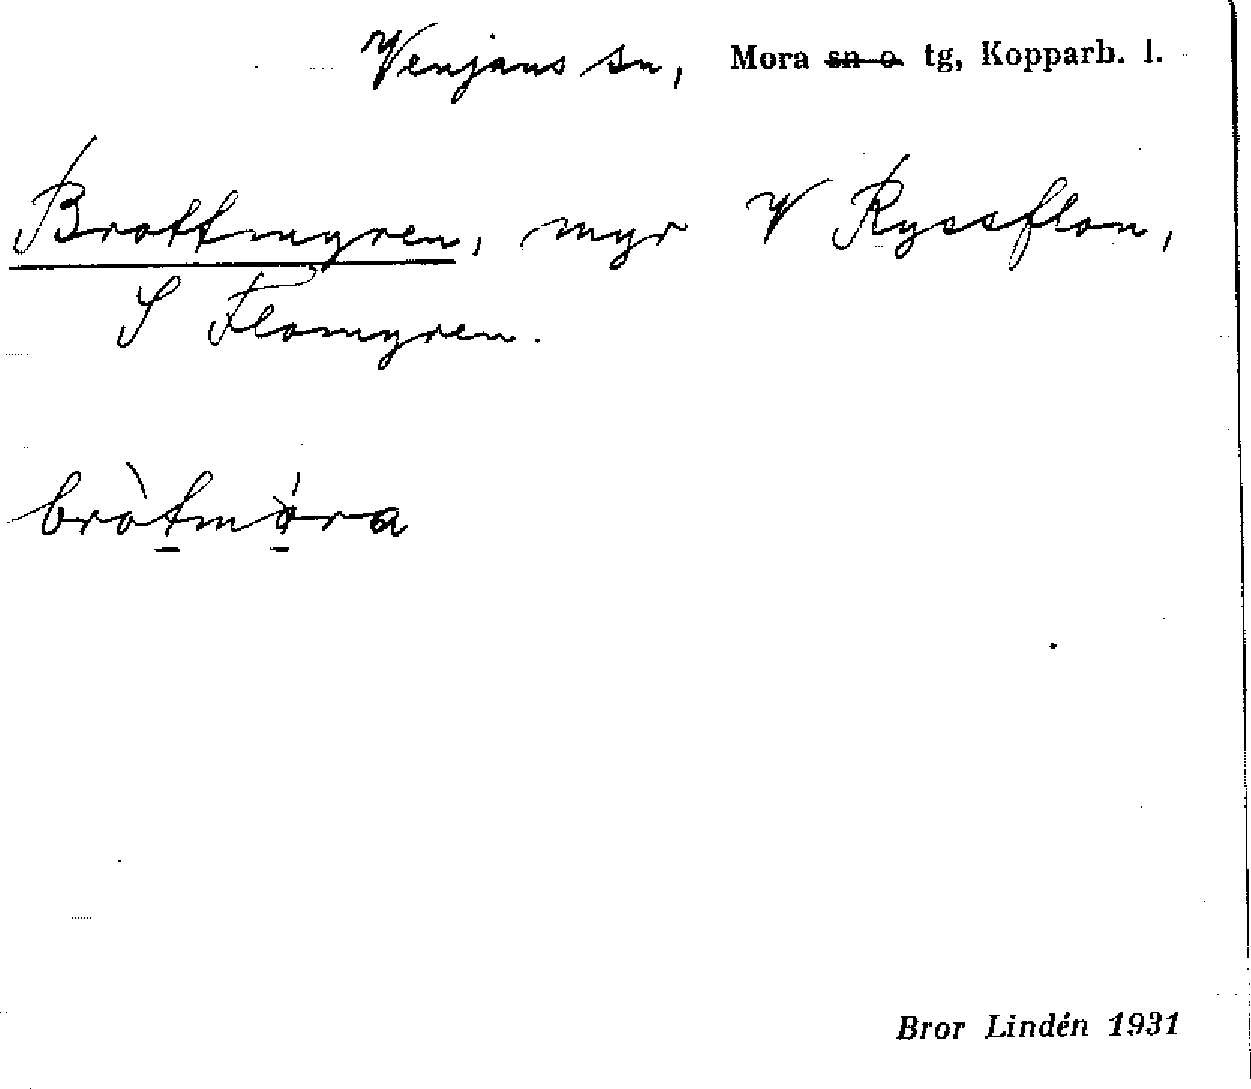 Venjans sn, Mora sn o. tg, Kopparb. l.
Brottmyren, myr V Ryssflon,
S Flomyren.
bròtmöra
Bror Lindén 1931